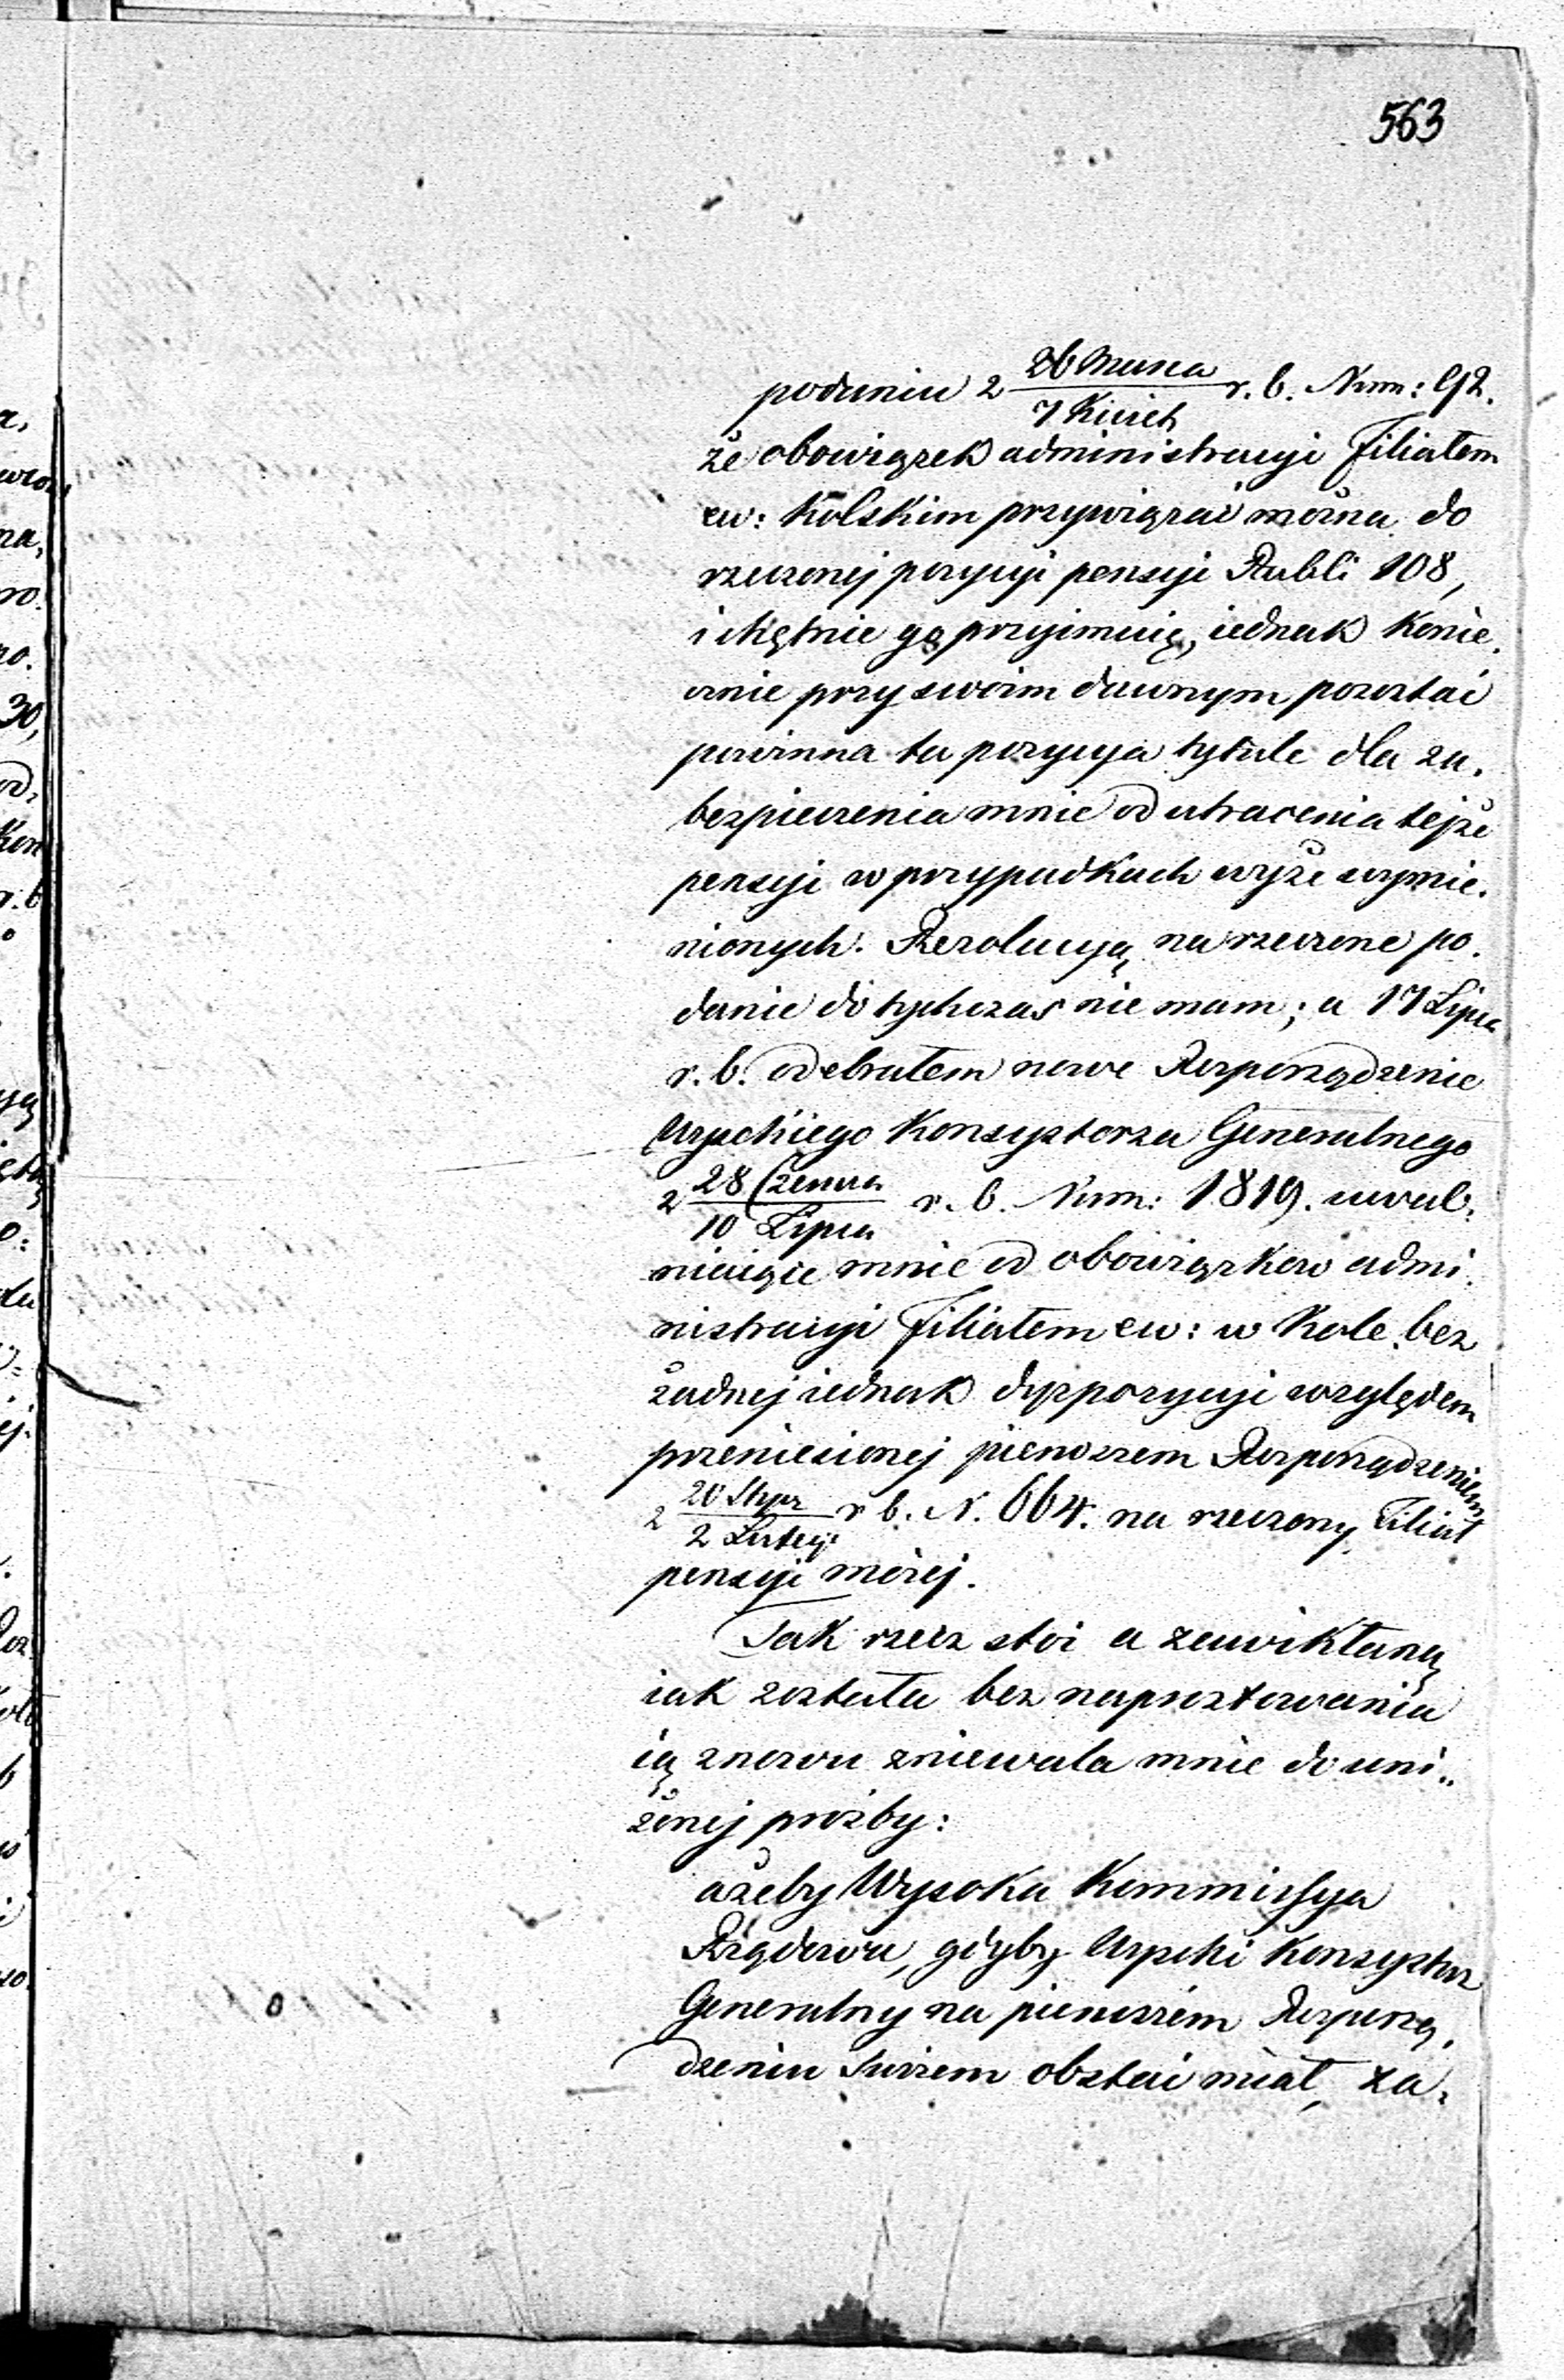 563
podaniu z 26 Marca / 7 Kwiet r. b. Num: 92.
że obowiązek administracyi Filiałem
ew: Kolskim przywiązać można do
rzeczonej pozycyi pensyi Rubli 108,
i chętnie go przyimuię, iednak konie.
cznie przy swoim dawnym pozostać
powinna ta pozycya tytule dla za.
bezpieczenia mnie od utracenia tejże
pensyi w przypadkach wyże wymie.
nionych. Rezolucyą na rzeczone po.
danie dotychczas nie mam; a 17 Lipca
r. b. odebrałem nowe Rozporządzenie
Wgo Konsystorza Generalnego
z 28 Czerwca / 10 Lipca r. b. Num: 1819. uwal:
niaiące mnie od obowiązkow admi.
nistracyi Filiałem ew: w Kole. bez
żadnej iednak dyspozycyi względem
przeniesionej pierwszem Rozporządzeniem
z 20 Stycz / 2 Lutego r b. N. 664. na rzeczony Filiał
pensyi moiej.
Tak rzecz stoi a zawikłaną
iak została bez naprostowania
ią znowu zniewala mnie do uni..
żonej prośby:
ażeby Wysoka Kommissya
Rządowa, gdyby Konsystorz
Generalny na pierwszém Rozporzą.
dzeniu Swoiem obstać miał, za: